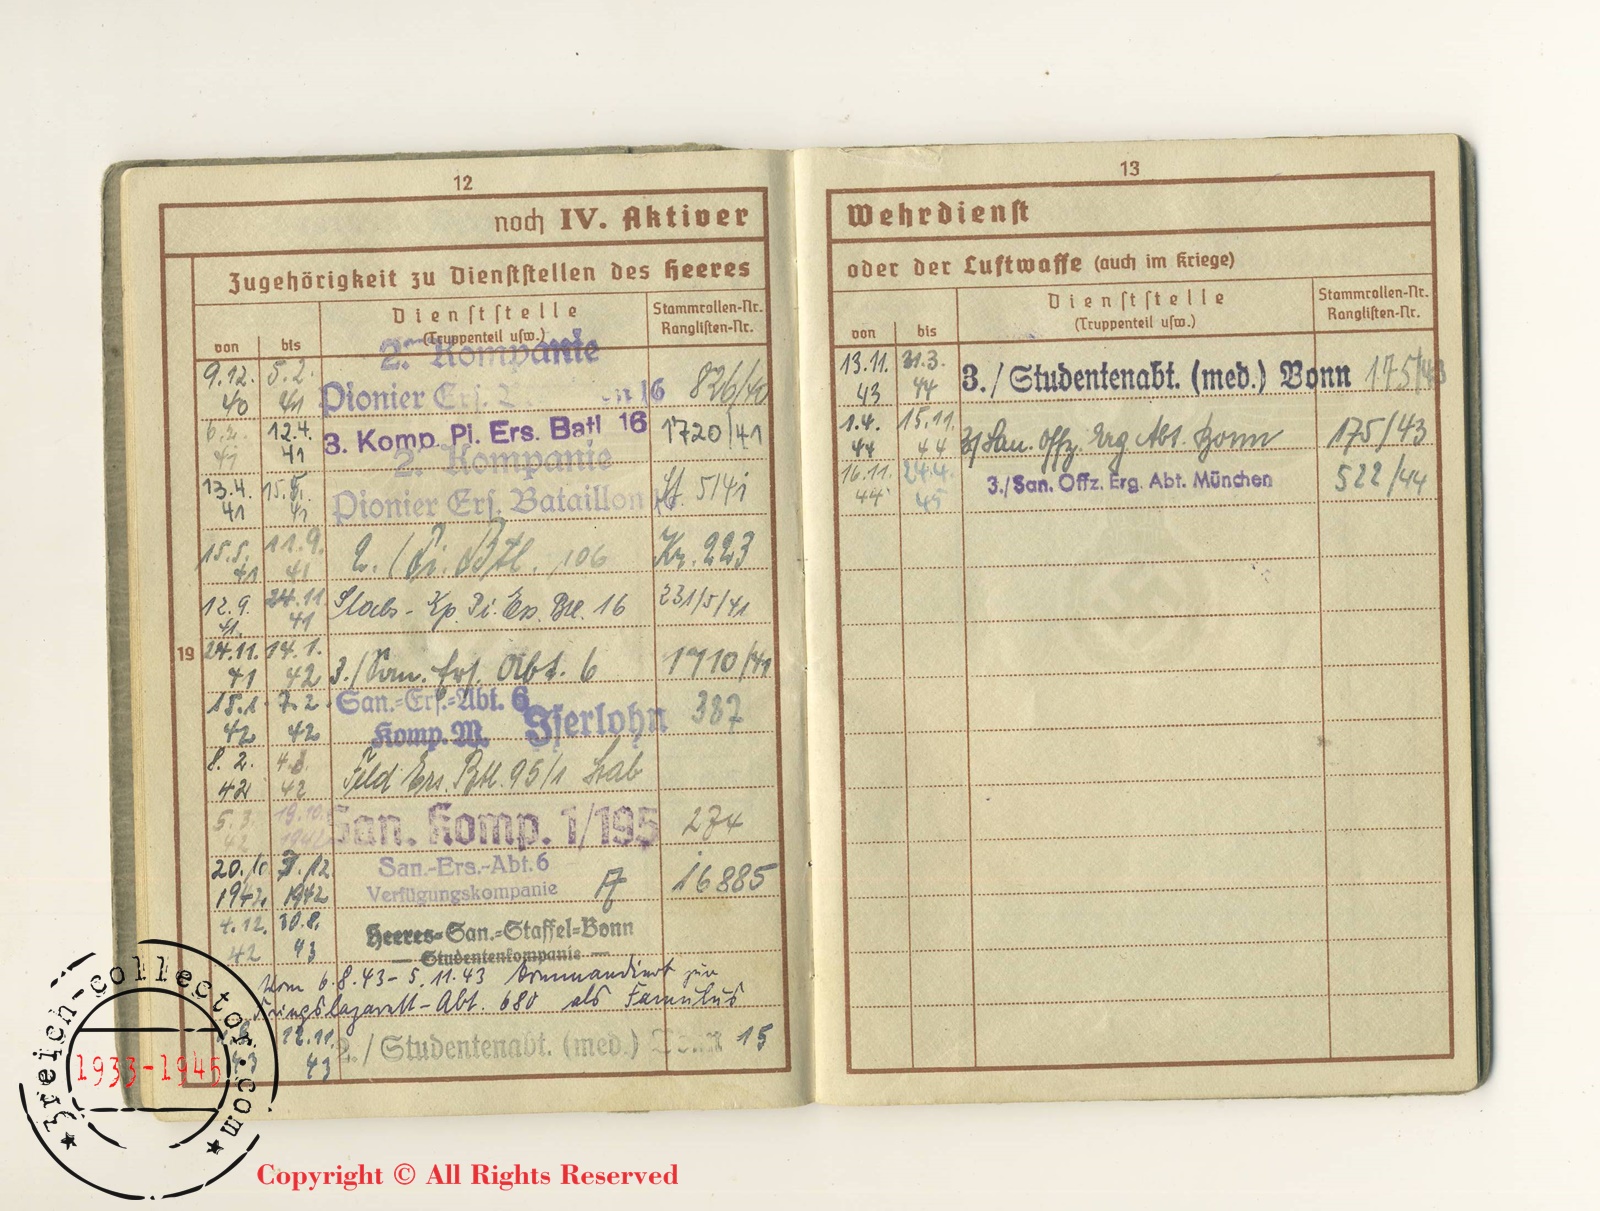 12
noch IV. Aktiver
Zugehörigkeit zu Dienststellen des Heeres
von
bis
Dienststelle
(Truppenteil usw.)
Stammrollen-Nr.
Ranglisten-Nr.
9.12. 5.2. 2. Kompanie
40 41 Pionier Ers. 16 826/40
12.4. 3. Komp. Pi. Ers. Batl 16 1720/41
41 41 2. Kompanie
13.4. 15.5. Pionier Ers. Bataillon 16 5/41
41 41
15.5. 11.9. 2./Pi. Btl. 106 Kr. 223
41 41
12.9. 24.11. Stabs-Kp. Pi. Ers. Btl. 16 231/5/41
41. 41
19
24.11. 14.1. 3./San. Ers. Abt. 6 1710/41
41 42
15.1. 7.2. San.-Ers.-Abt. 6 387
42 42 Komp. M. Iserlohn
8.2. 4.3. Feld Ers. Btl. 95/1 Stab
42 42
5.3. 19.10. San. Komp. 1/195 274
42 1942
20./10 3./12 San.-Ers.-Abt. 6
1942 1942 Verfügungskompanie A 16885
4.12. 30.8. Heeres-San.-Staffel-Bonn
42 43 — Studentenkompanie —
Vom 6.8.43 - 5.11.43 kommandiert zur
Kriegslazarett-Abt. 680 als Famulus
12.11. 2./Studentenabt. (med.) Bonn 15
43 43
13
Wehrdienst
oder der Luftwaffe (auch im Kriege)
von
bis
Dienststelle
(Truppenteil usw.)
Stammrollen-Nr.
Ranglisten-Nr.
13.11. 31.3. 3./Studentenabt. (med.) Bonn 175/43
43 44
1.4. 15.11. 3/San. Offz. Erg Abt. Bonn 175/43
44 44
16.11. 24.4. 3./San. Offz. Erg. Abt. München 522/44
44 45
3reich-collector.com
1933-1945
Copyright © All Rights Reserved